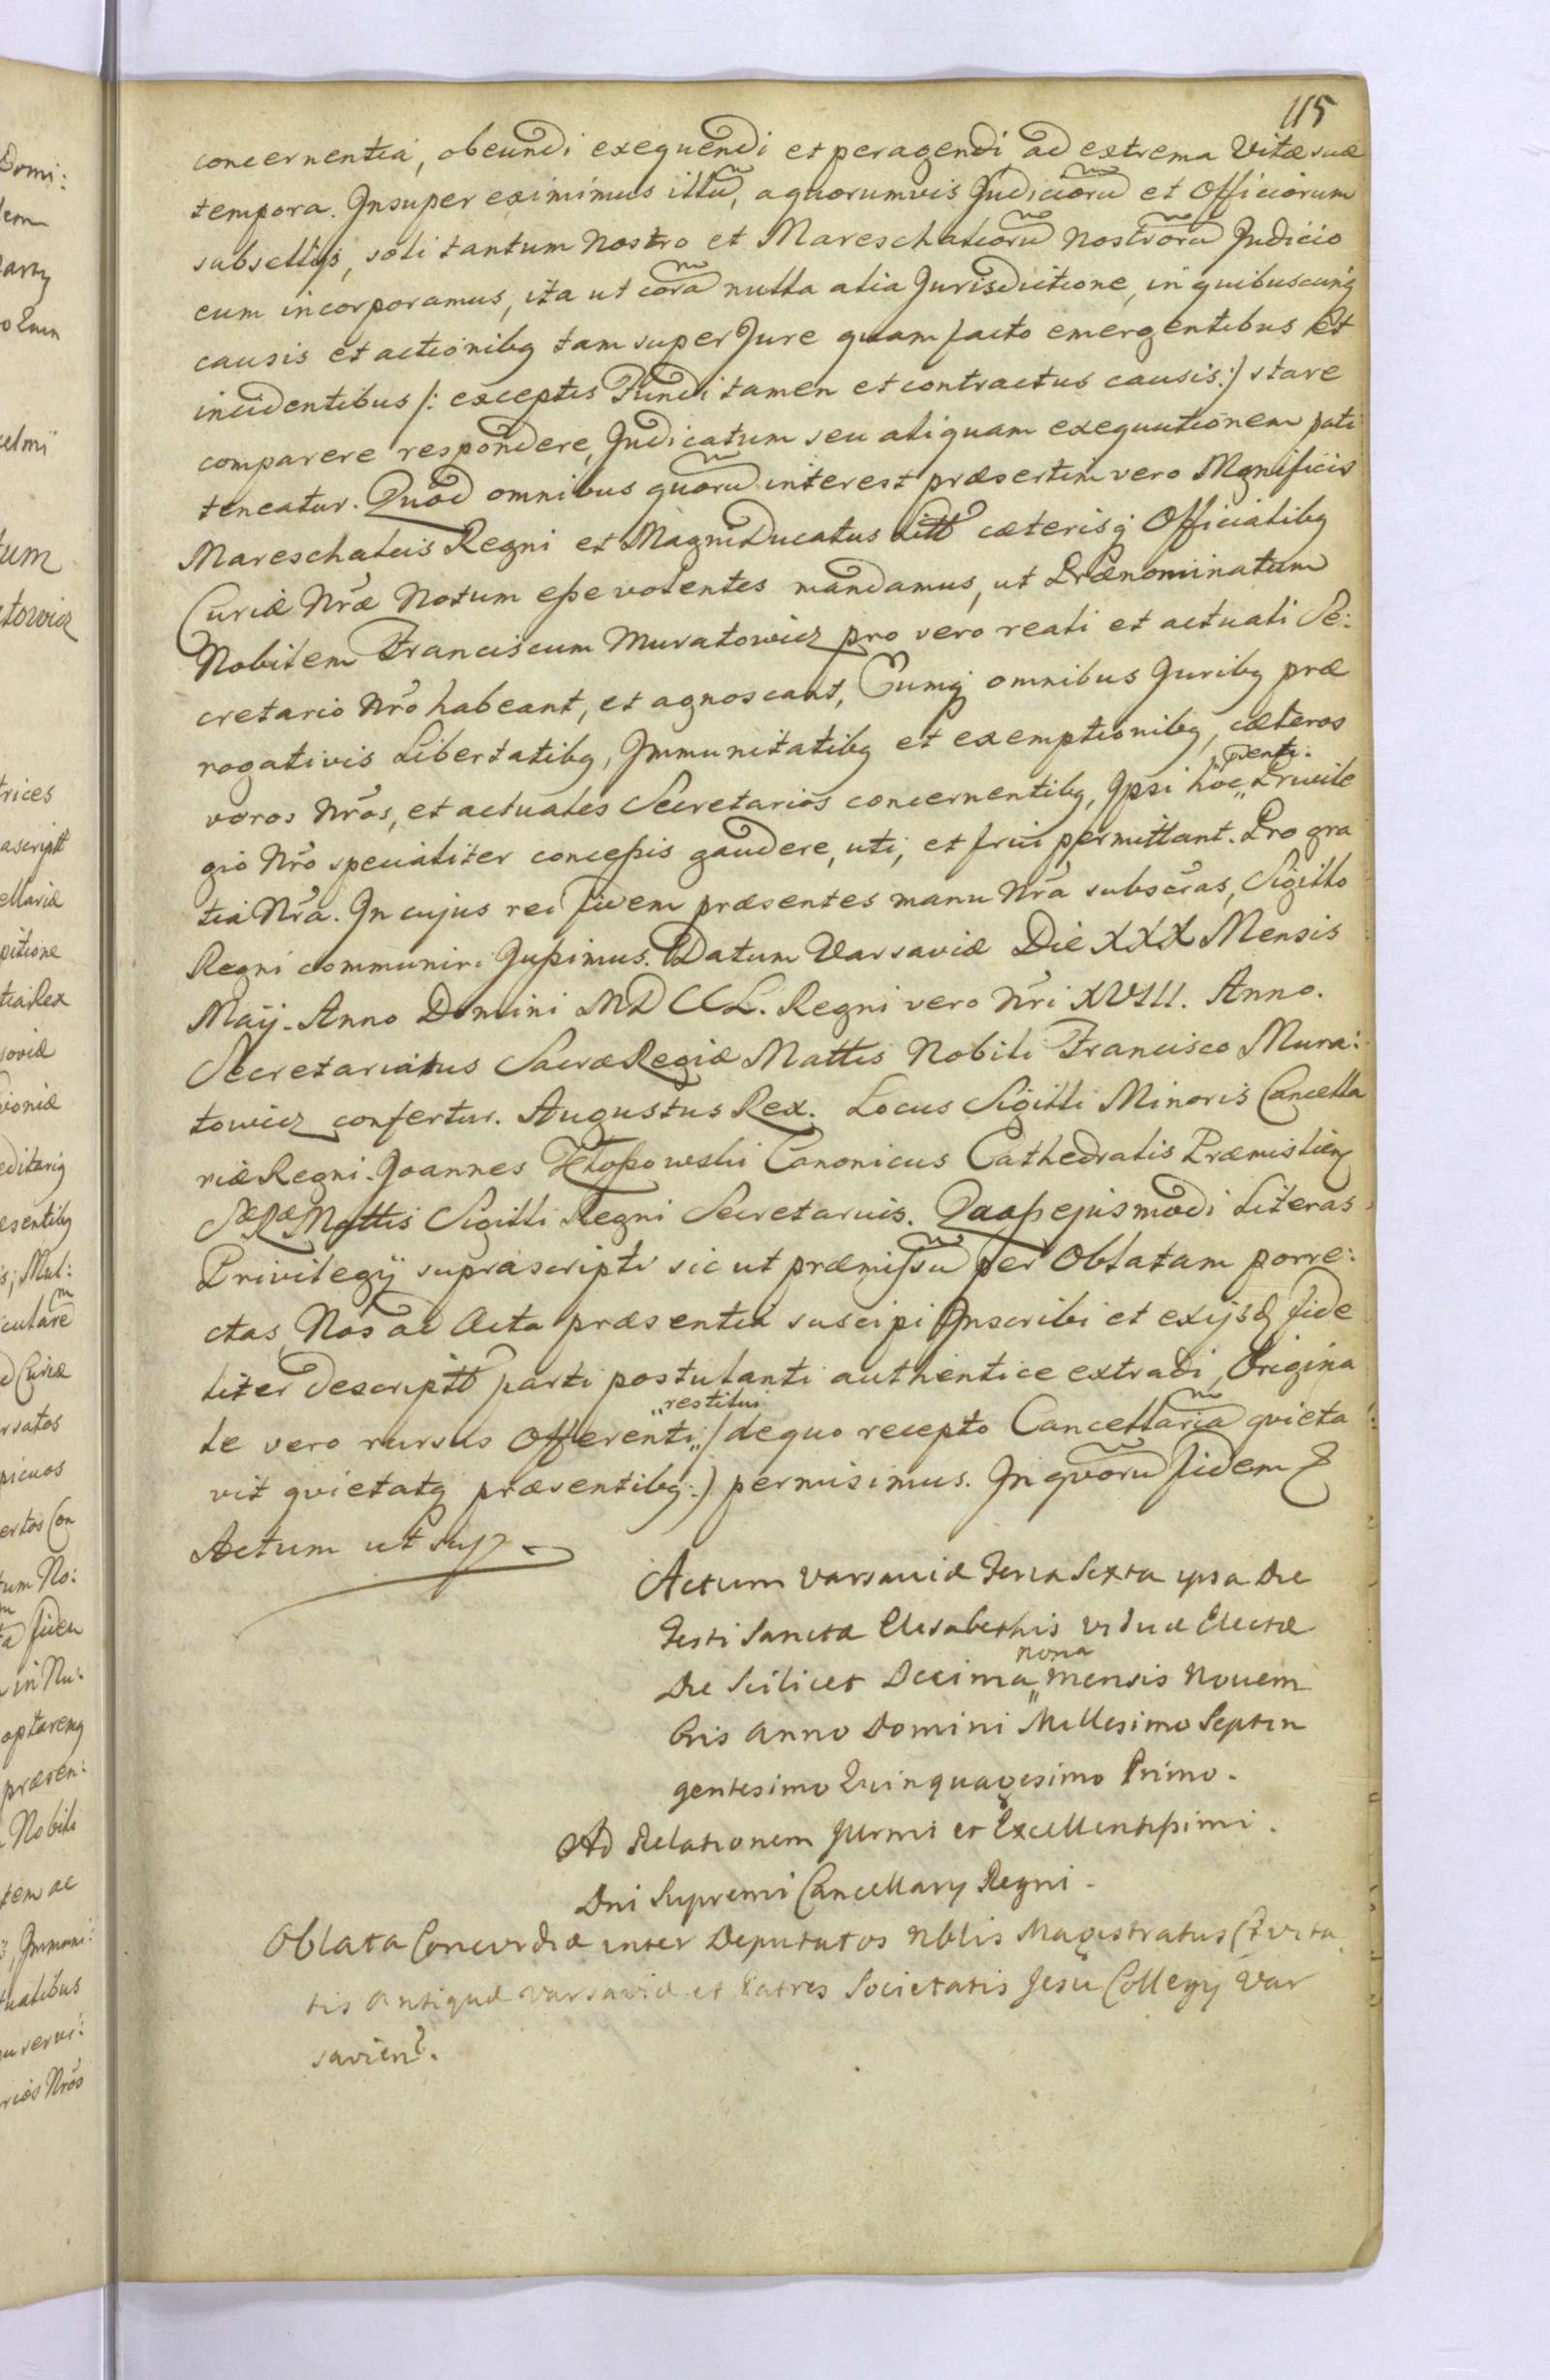 115
concernentia, obeundi exequendi et peragendi, ad extrema Vitæ suæ
tempora. Insuper eximimus illũ, a quorumvis Judiciorũ et Officiorum
subsellijs, soli tantum Nostro et Mareschalcorũ Nostrorũ Judicio
eum incorporamus, ita ut corã nulla alia Jurisdictione, in quibuscunq̃
causis et actionibꝫ tam super Jure quam facto emergentibus et
incidentibus /: exceptis Fundi tamen et contractus causis :/ stare
comparere respondere, Judicatum seu aliquam exequutionem pati
teneatur. Quod omnibus quorũ interest præsertim vero Mgnificis
Mareschalcis Regni et Magni Ducatus Litt cæterisq̃ Officialibꝫ
Curiæ Nræ Notum eße volentes mandamus, ut Prænominatum
Nobilem Franciscum Muratowicz pro vero reali et actuali Se:
cretario Nro habeant, et agnoscant, Eumq̃ omnibus Juribꝫ præ
rogativis Libertatibꝫ, Immunitatibꝫ et exemptionibꝫ, cæteros
veros Nros, et actuales Secretarios concernentibꝫ, Ipsi hoc „ Privile
„ senti.
gio Nro specialiter conceßis gaudere, uti, et frui permittant. Pro gra
tia Nra. In cujus rei fidem præsentes manu Nra subscras, Sigillo
Regni communiri Jußimus. Datum Varsaviæ Die XXX Mensis
Maij. Anno Domini MDCCL. Regni vero Nri XVIII. Anno.
Secretariatus Sacræ Regiæ Mattis Nobili Francisco Mura:
towicz confertur. Augustus Rex. Locus Sigilli Minoris Cancella
riæ Regni. Joannes Kłoßowski Canonicus Cathedralis Præmislien
Sæ Ræ Mattis Sigilli Regni Secretarius. Quas ejusmodi Literas
Privilegij suprascripti sic ut præmißũ per Oblatam porre:
ctas Nos ad Acta præsentia suscipi Inscribi et ex ijsd fide
liter descriptt parti postulanti authentice extradi, Origina
le vero rursus Offerenti „ /de quo recepto Cancellariã quieta
„ restitui
vit quietatq̃ præsentibꝫ :) permisimus. In quorũ fidem &
Actum ut Sup.
Actum Varsaviæ Feria Sexta ipsa Die
Festi Sanctæ Elisabethis Viduæ Electæ
Die Scilicet Decima „ Mensis Novem
nona
bris Anno Domini Millesimo Septin
gentesimo Quinquagesimo Primo.
Ad Relationem Illrmi et Excellentißimi.
Dni Supremi Cancellary Regni.
Oblata Concordiæ inter Deputatos Nblis Magistratus Civita
tis Antiquæ Varsaviæ et Patres Societatis Jesu Collegij Var
savien.